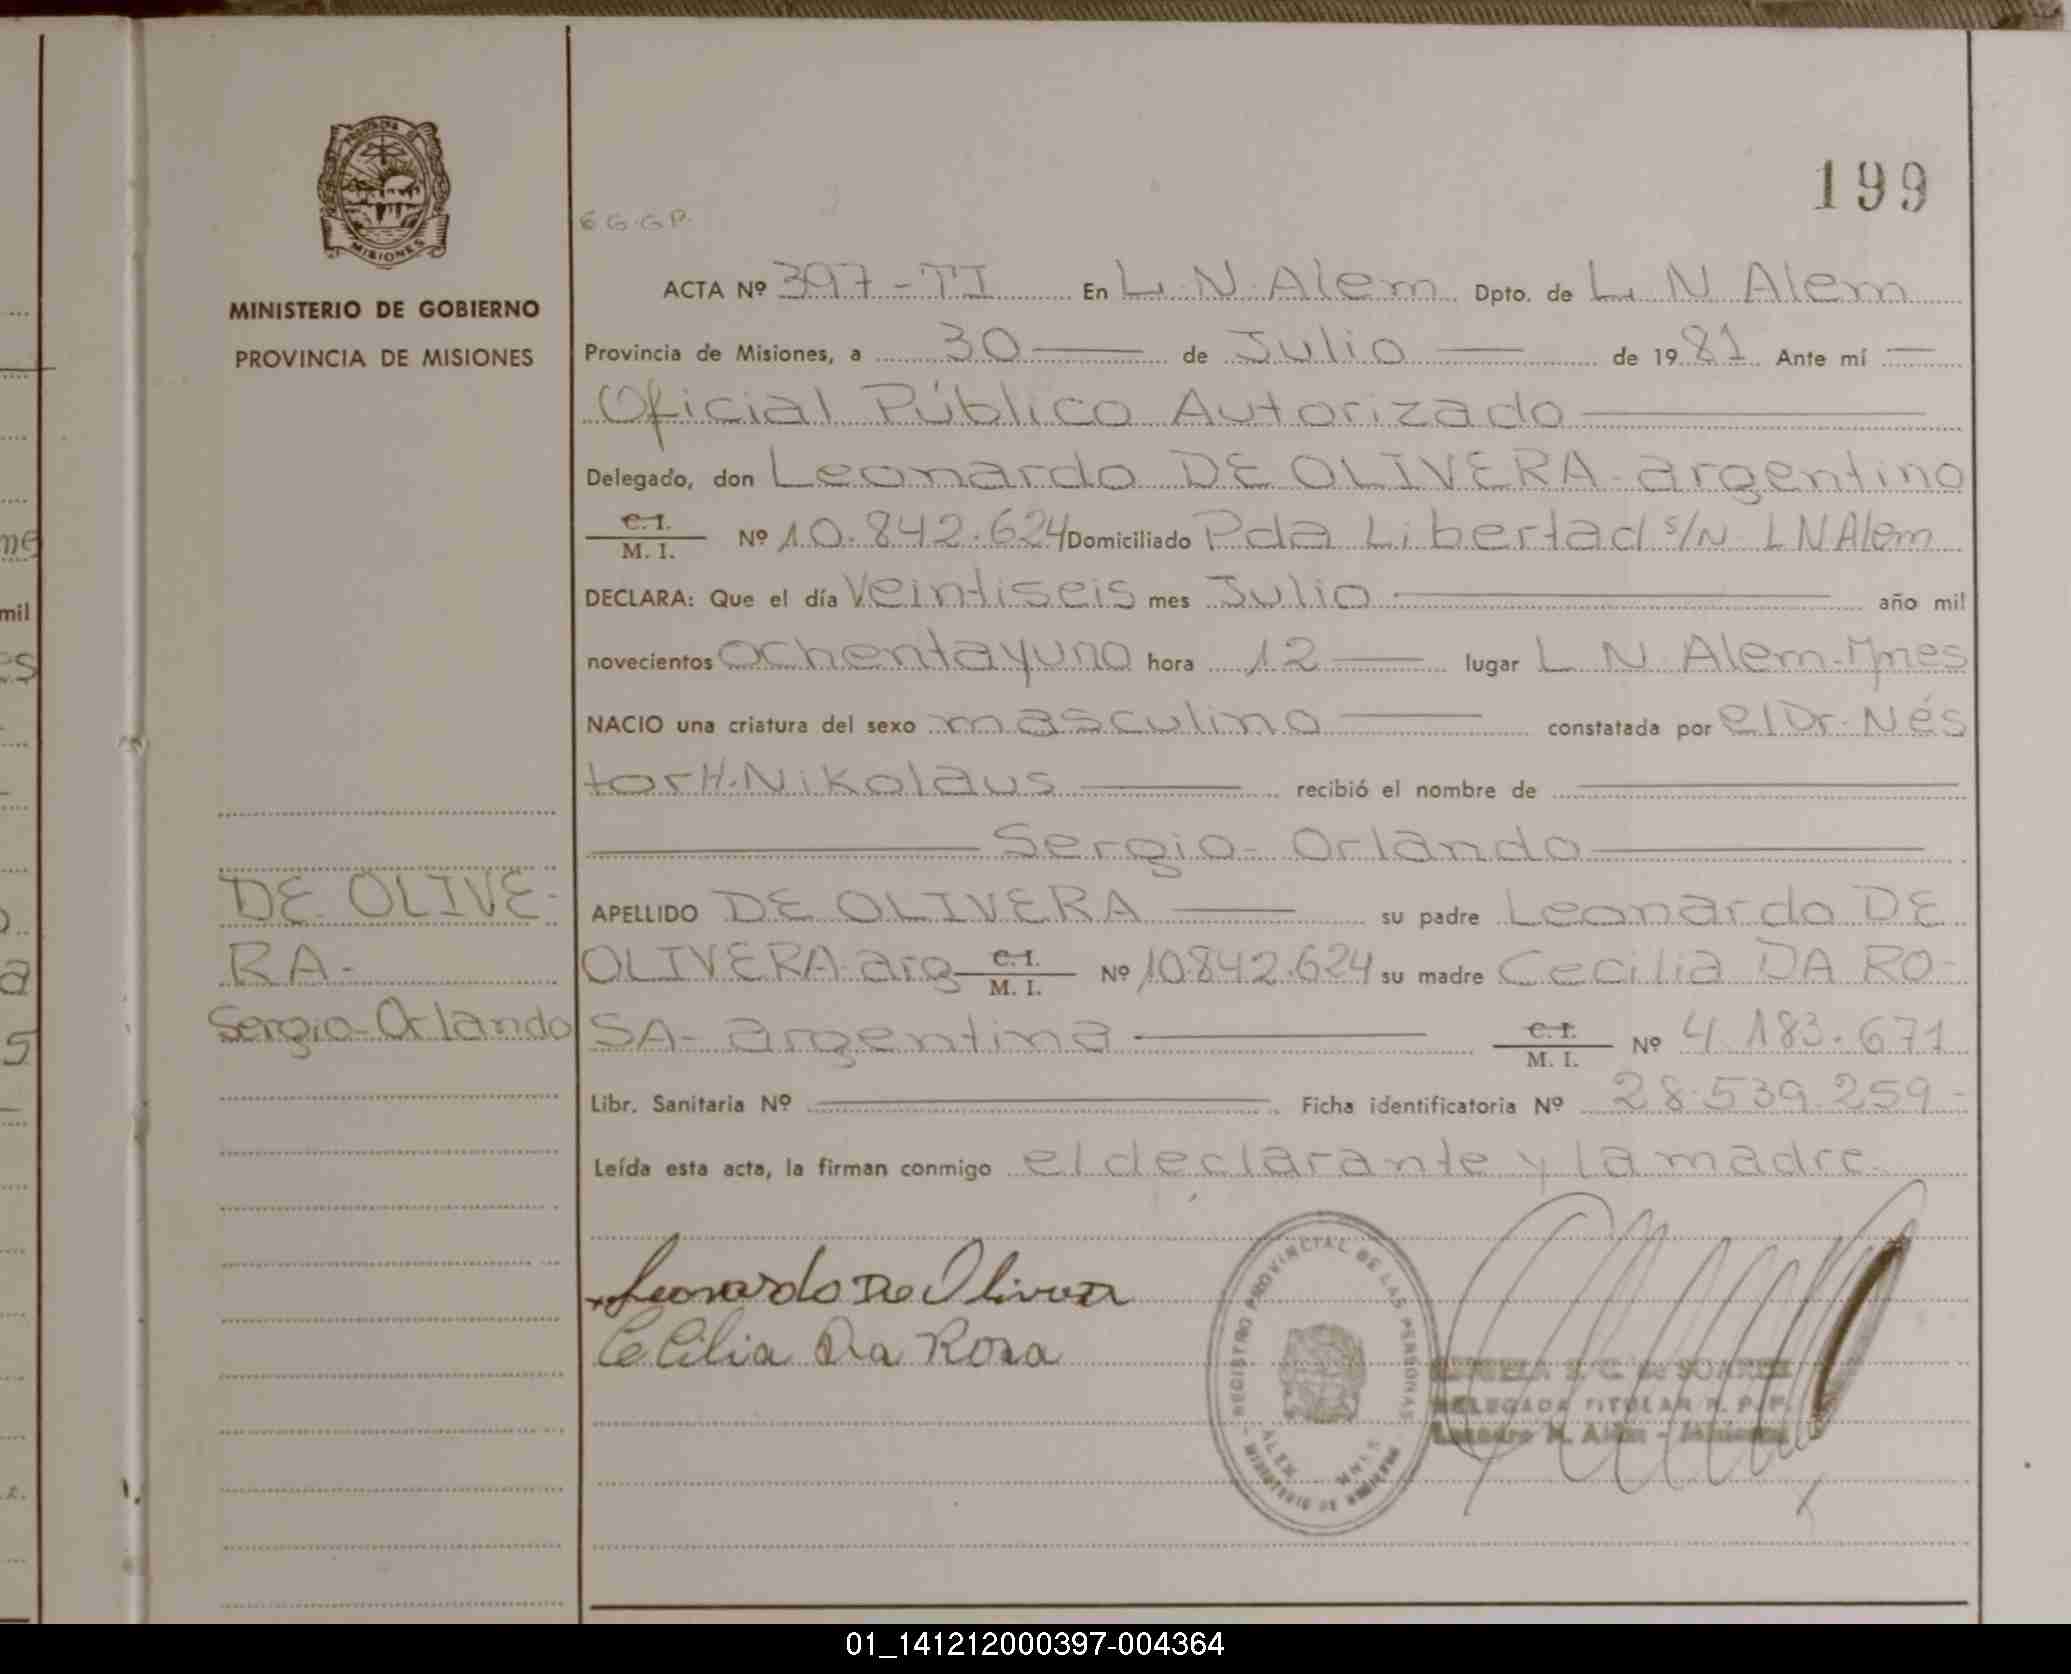 199
PROVINCIA DE
MISIONES
MINISTERIO DE GOBIERNO
PROVINCIA DE MISIONES
DE OLIVE-
RA-
Sergio-Orlando
6 G. G P.
ACTA Nº 397-TI En L. N. Alem Dpto. de L. N Alem
Provincia de Misiones, a 30 de Julio de 1981 Ante mí
Oficial Público Autorizado
Delegado, don Leonardo DE OLIVERA-argentino
C.I. M. I. Nº 10.842.624 Domiciliado Pda Libertad s/N L N Alem
DECLARA: Que el día Veintiseis mes Julio año mil
novecientos ochentayuno hora 12 lugar L N. Alem-Mnes
NACIO una criatura del sexo masculino constatada por el Dr. Nés
tor H. Nikolaus recibió el nombre de
Sergio- Orlando
APELLIDO DE OLIVERA su padre Leonardo DE
OLIVERA-arg C.I. M. I. Nº 10842.624 su madre Cecilia DA RO-
SA- argentina C.I. M. I. Nº 4.183.671
Libr. Sanitaria Nº Ficha identificatoria Nº 28.539.259-
Leída esta acta, la firman conmigo el declarante y la madre.
Leonardo De Olivera
Cecilia Da Rosa
REGISTRO PROVINCIAL DE LAS PERSONAS
ALEM MNES
MINISTERIO DE GOBIERNO
S. C. de SOAREZ
DELEGADA TITULAR R. P. P.
Leandro N. Alem - Misiones
01_141212000397-004364
mil